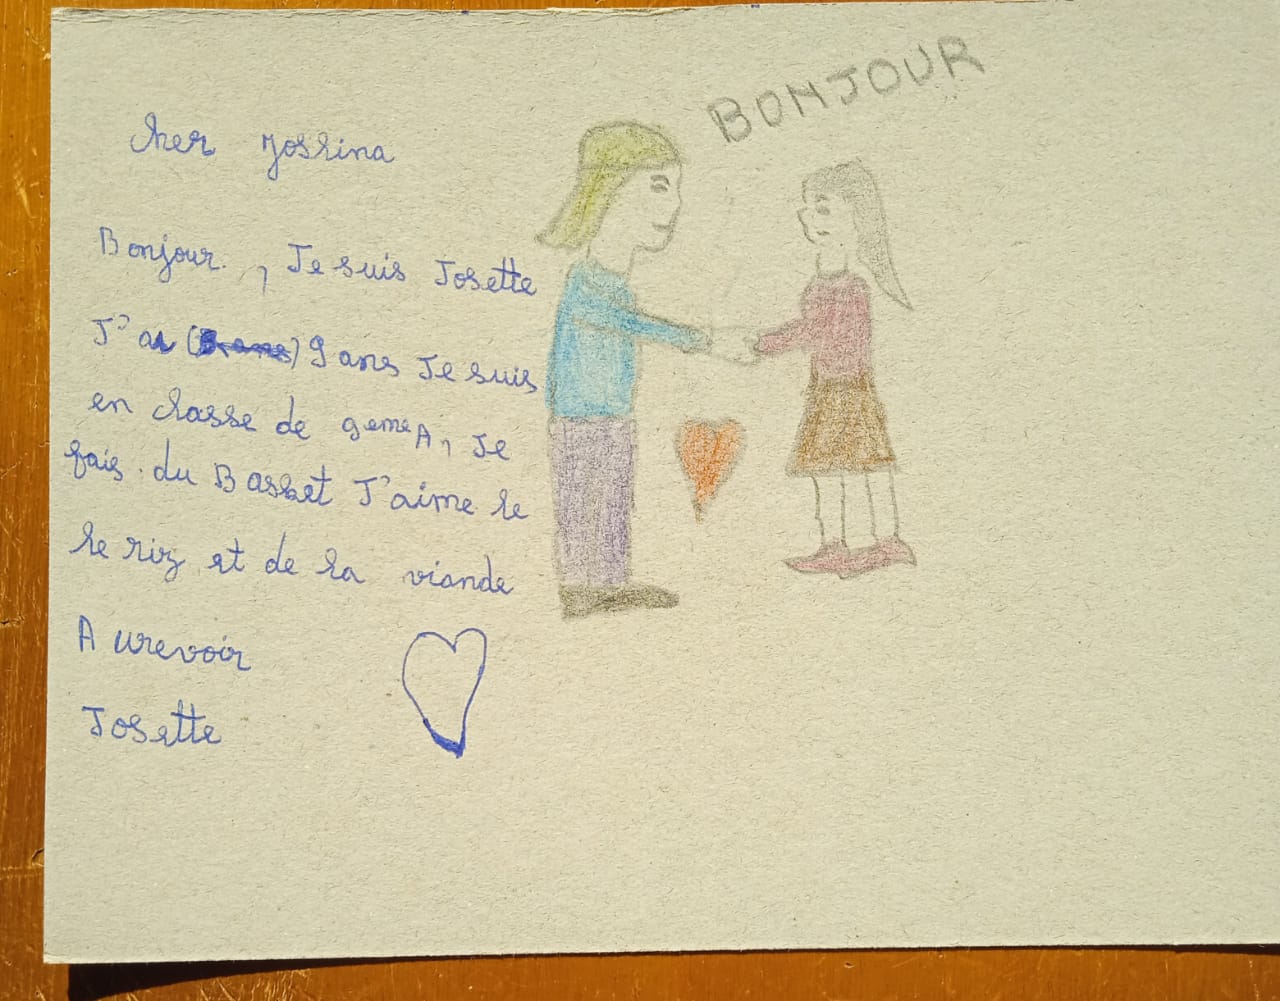 BONJOUR
Cher Yoshina
Bonjour , Je suis Josette
J'ai ( ) 9 ans Je suis
en classe de 9emeA, Je
fais du Basket J'aime le
le riz et de la viande
A urevoir
Josette